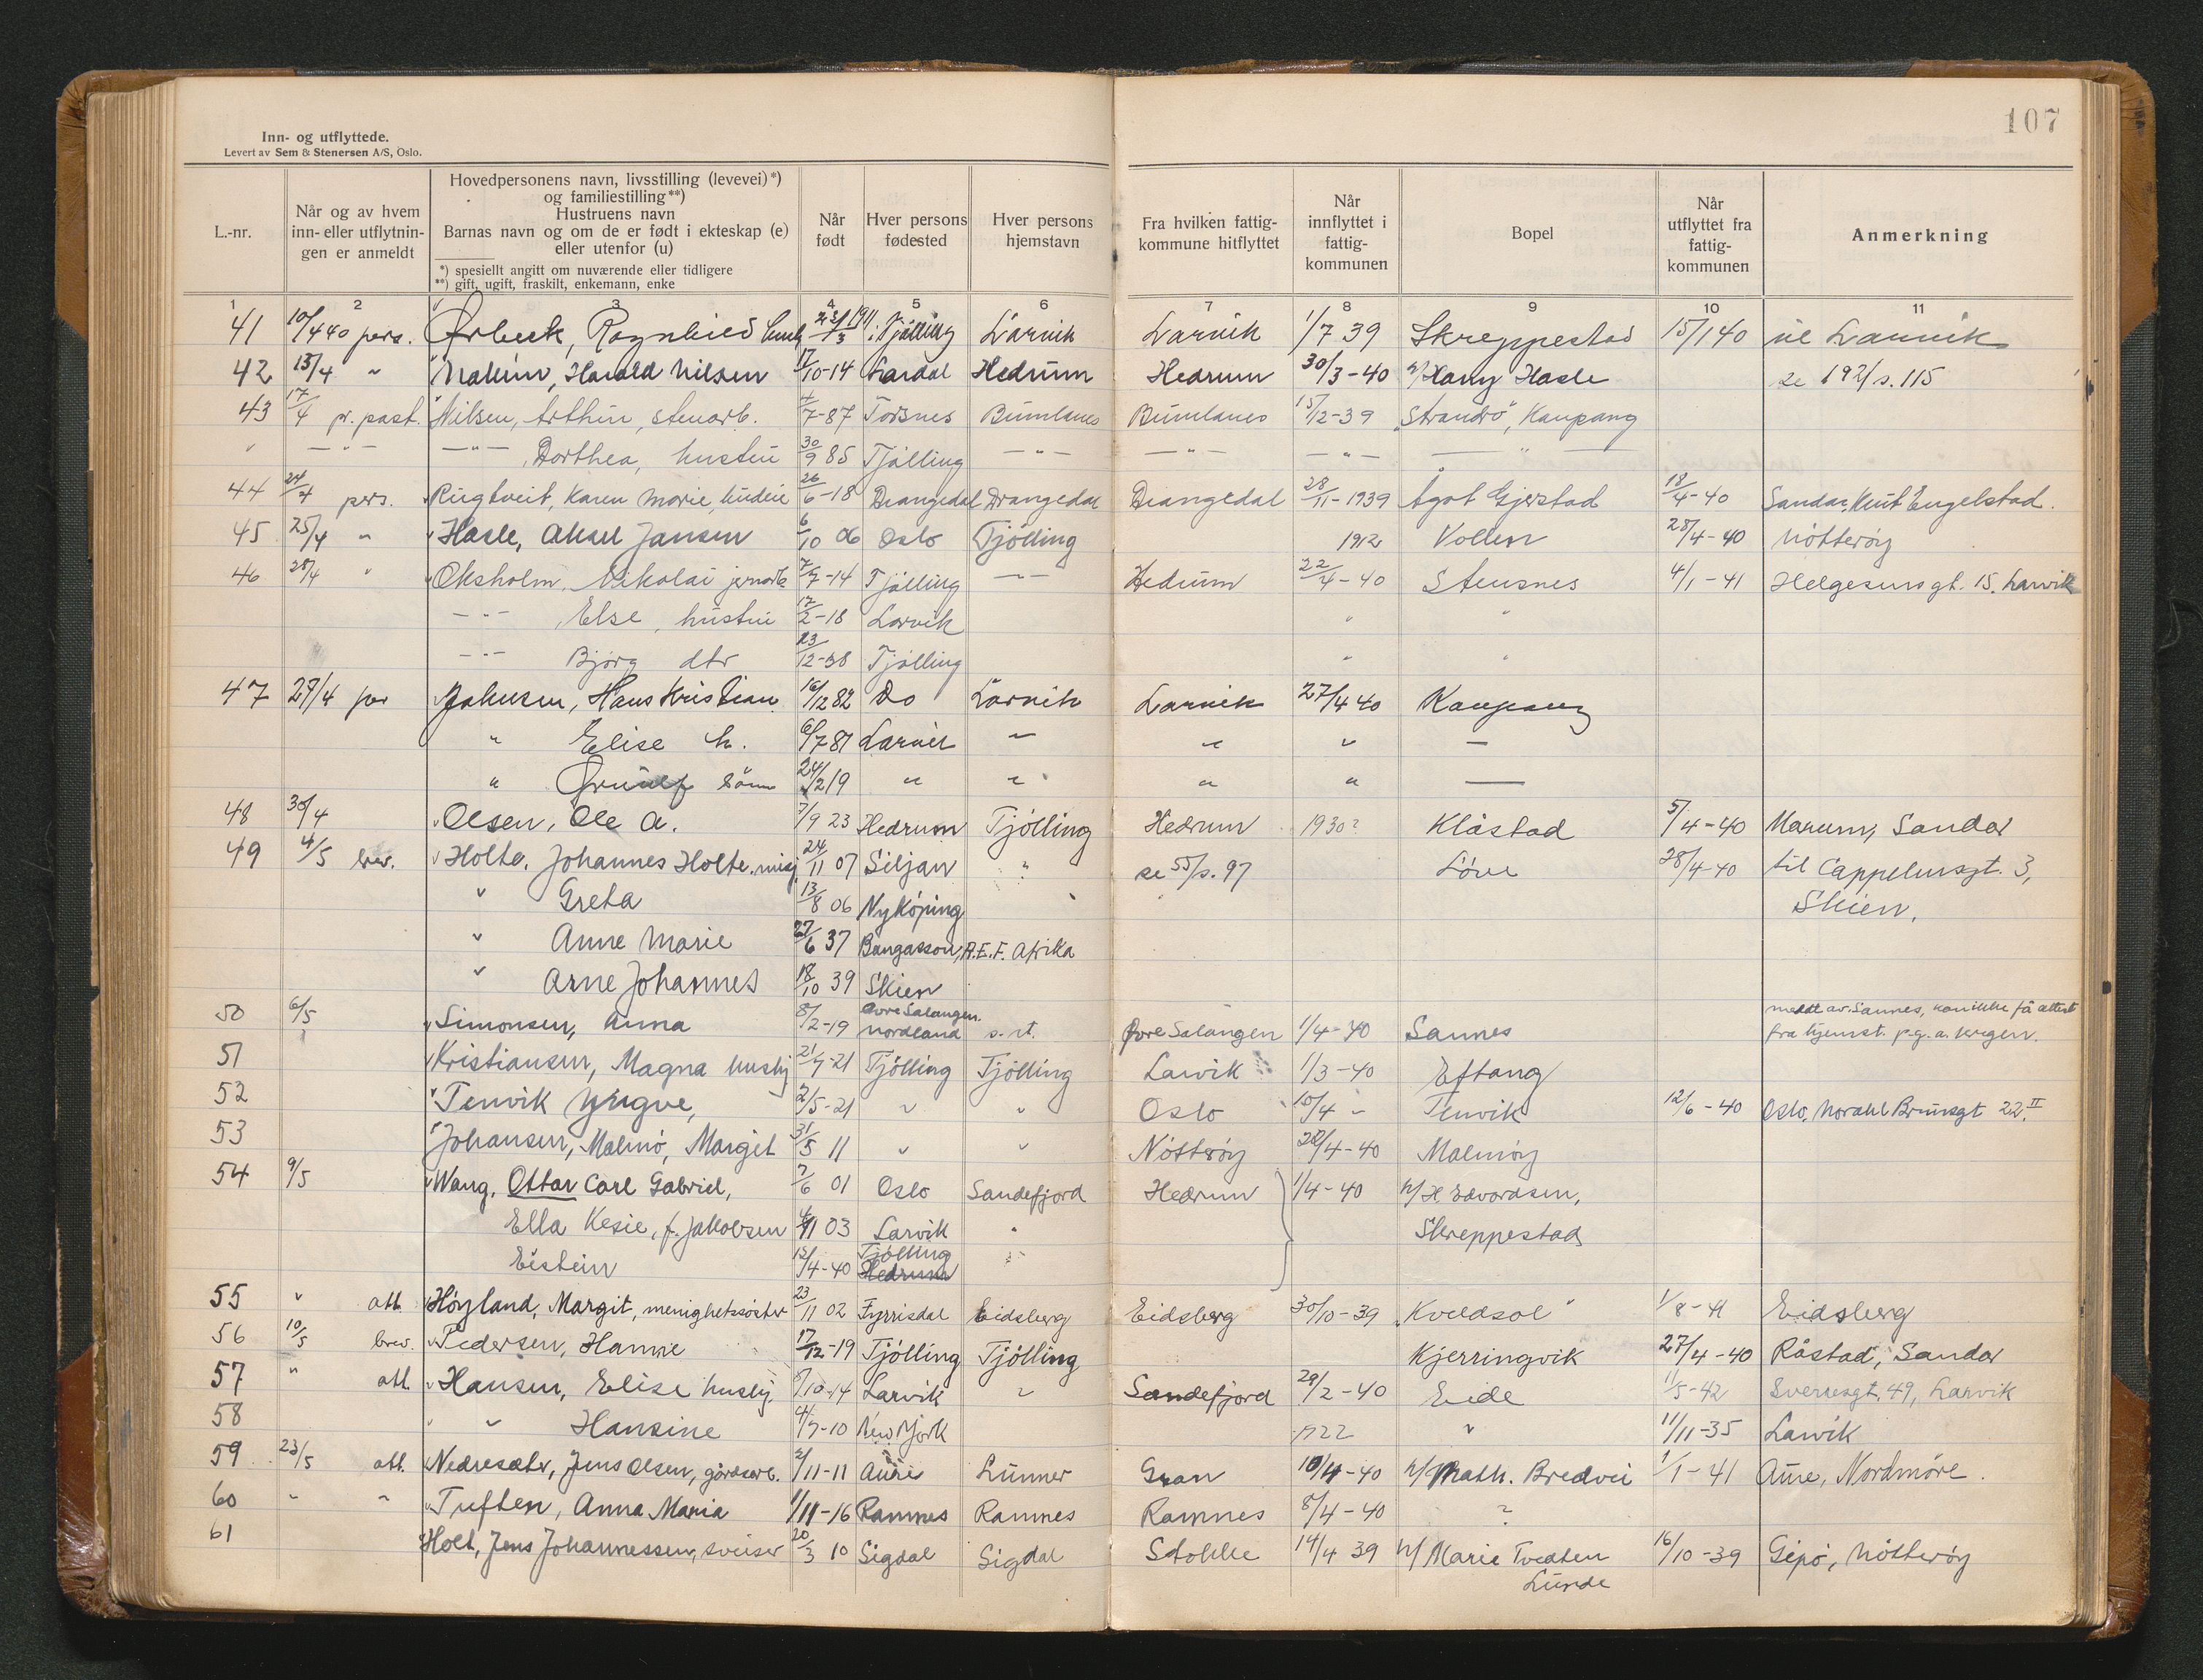 107
Inn- og utflyttede.
Levert av Sem & Stenersen A/S, Oslo.
L.-nr.
Når og av hvem inn- eller utflytningen er anmeldt
Hovedpersonens navn, livsstilling (levevei)*) og familiestilling**)
Hustruens navn
Barnas navn og om de er født i ekteskap (e) eller utenfor (u)
*) spesiellt angitt om nuværende eller tidligere
**) gift, ugift, fraskilt, enkemann, enke
Når født
Hver persons fødested
Hver persons hjemstavn
Fra hvilken fattigkommune hitflyttet
Når innflyttet i fattigkommunen
Bopel
Når utflyttet fra fattigkommunen
Anmerkning
1 2 3 4 5 6 7 8 9 10 11
41 10/4 40 pers. Ørbeck, Ragnhild 23/3 1911 Tjølling Larvik Larvik 1/7 39 Skreppestad 15/1 40 Larvik
42 13/4 " Harald Nilsen 17/10-14 Lardal Hedrum Hedrum 30/3-40 h/ Harry Hasle se 192/s.115
43 17/4 pr. post. Nilsen, Arthur, stenarb. 7-87 Torsnes Bumlanes Bumlanes 15/12-39 "Strandro", Kaupang
" —"— —"— , Dorthea, hustru 30/9 85 Tjølling —"— —"— —"— —"—
44 24/4 pers. Rugtveit, Karen Marie 26/6-18 Drangedal Drangedal Drangedal 28/11-1939 Agot Gjerstad 18/4-40 Sandar, Knut Engelstad.
45 25/4 " Hasle, Aksel Jansen 6/10 06 Oslo Tjølling 1912 Vollen 28/4-40 Nøtterøy
46 28/4 " Oksholm, Nikolai jernarb. 7/7-14 Tjølling —"— Hedrum 22/4-40 Stensnes 4/1-41 Helgesensgt. 15. Larvik
—"— , Else, hustru 12/2-18 Larvik " "
—"— Bjørg dtr 23/12-38 Tjølling " "
47 27/4 per Johnsen, Hans Kristian 16/12 82 Do Larvik Larvik 27/4 40 Kaupang
" Elise h. 6/7 81 Larvik " " " —
" sønn 24/2 19 " " " " —
48 30/4 Olsen, Ole A. 7/9 23 Hedrum Tjølling Hedrum 1930? Klåstad 5/4-40 Marum, Sandar
49 4/5 brev. Holte, Johannes Holte, misj. 24/11 07 Siljan " se 55/s. 97 Løve 28/4-40 til Cappelensgt. 3,
" Greta 13/8 06 Nykøping " Skien.
" Anne Marie 27/6 37 Bangassou, A.E.F. Afrika
" Arne Johannes 18/10 39 Skien
50 6/5 Simonsen, Anna 8/2-19 Øvre Salangen. Nordland s. st. Øvre Salangen 1/4-40 Sannes meldt av Sannes, kan ikke få attest
fra hjemst. p.g.a. krigen.
51 Kristiansen, Magna hushj 21/7-21 Tjølling Tjølling Larvik 1/3-40 Eftang
52 Tenvik Yngve, 2/5-21 " " Oslo 10/4 - Tenvik 12/6-40 Oslo, Nordahl Brunsgt 22. II
53 Johansen, Malmø, Margit 31/5 11 " " Nøtterøy 28/4-40 Malmøy
54 9/5 Wang, Ottar Carl Gabriel, 7/6 01 Oslo Sandefjord Hedrum 1/4-40 h/ H. Edvardsen,
Ella Kesie, f. Jakobsen 4/11 03 Larvik " Skreppestad
Eistein 15/4-40 Tjølling Hedrum "
55 " att. Høyland, Margit, menighetssøster 23/11 02 Fyrrisdal Eidsberg Eidsberg 30/10-39 "Kveldsol" 1/8-41 Eidsberg
56 10/5 brev. Pedersen, Hannie 17/12-19 Tjølling Tjølling Kjerringvik 27/4-40 Råstad, Sandar
57 " att. Hansen, Elise hushj. 8/10-14 Larvik " Sandefjord 29/2-40 Eide 11/5-42 Sverresgt. 49, Larvik
58 " " Hansine 4/7-10 New York 1922 " 11/11-35 Larvik
59 23/5 att. Nedresæter, Jens Olsen, gårdsarb. 2/11-11 Aure Lunner Gran 10/4-40 h/ Math. Bredvei 1/1-41 Aure, Nordmøre.
60 " " Tuften, Anna Maria 1/11-16 Ramnes Ramnes Ramnes 8/4-40 ?
61 Holt, Jens Johannessen, sveiser 20/3 10 Sigdal Sigdal Stokke 14/4 39 h/ Marie Tvedten 16/10-39 Gipø, Nøtterøy
Lunde